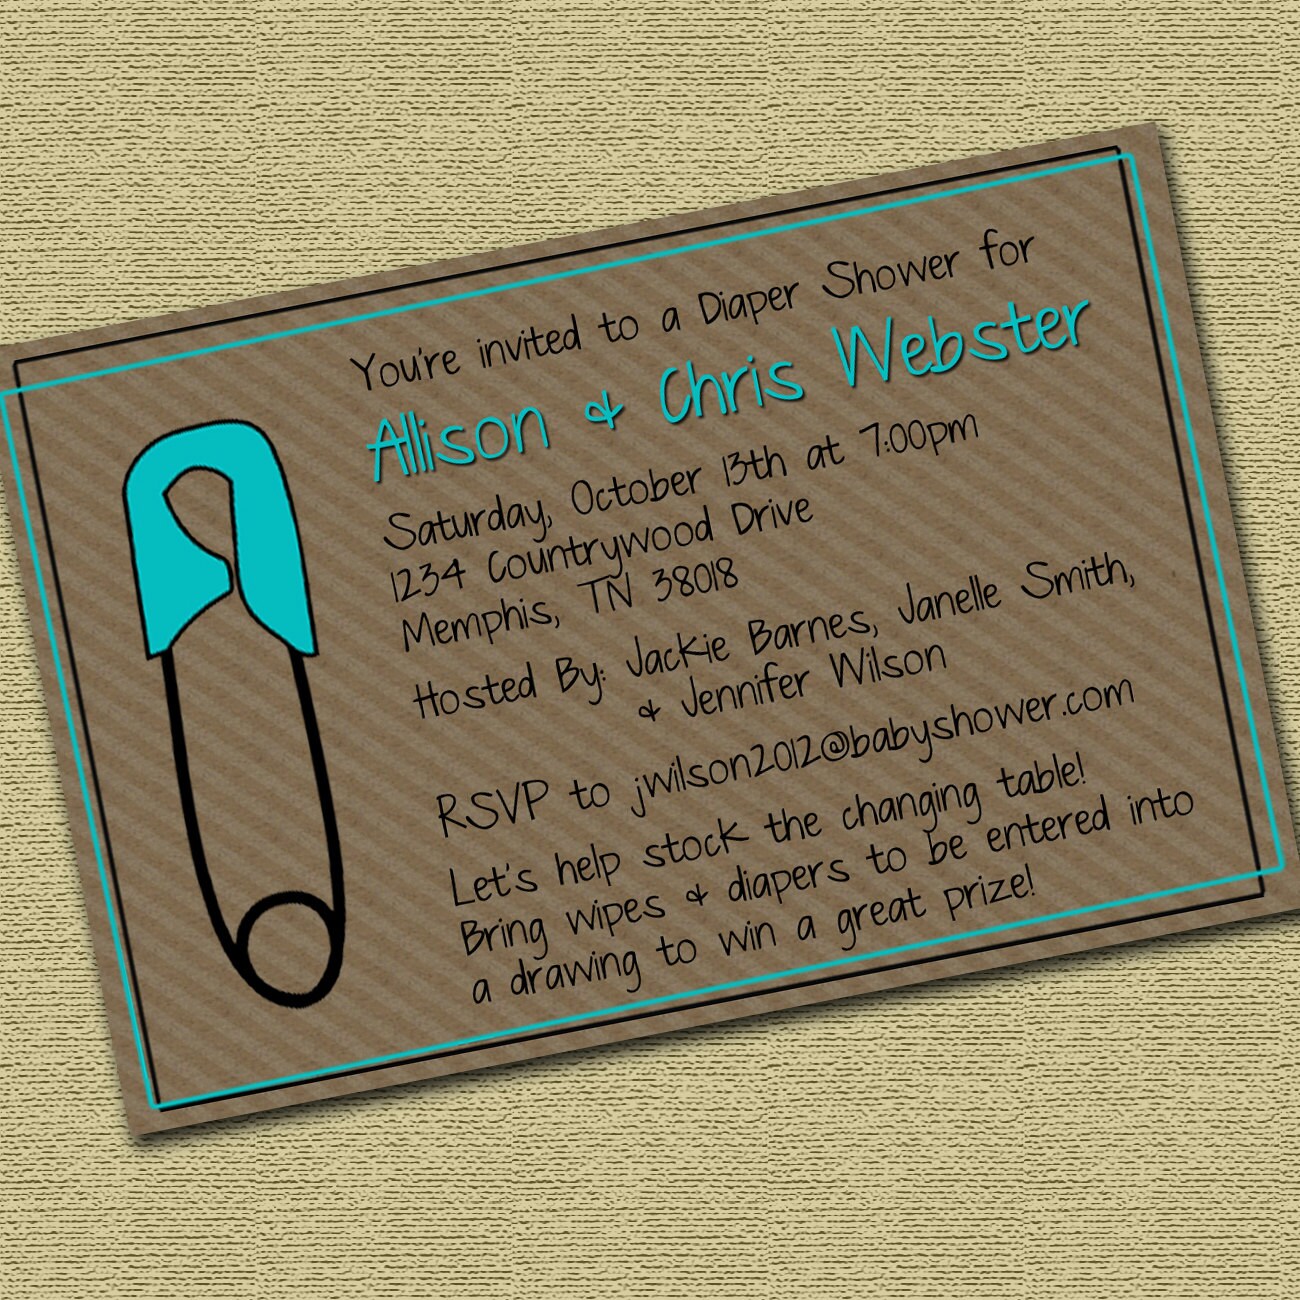 You're invited to a Diaper Shower for
Allison & Chris Webster
Saturday, October 13th at 7:00pm
1234 Countrywood Drive
Memphis, TN 38018
Hosted By: Jackie Barnes, Janelle Smith,
& Jennifer Wilson
RSVP to jwilson2012@babyshower.com
Let's help stock the changing table!
Bring wipes & diapers to be entered into
a drawing to win a great prize!